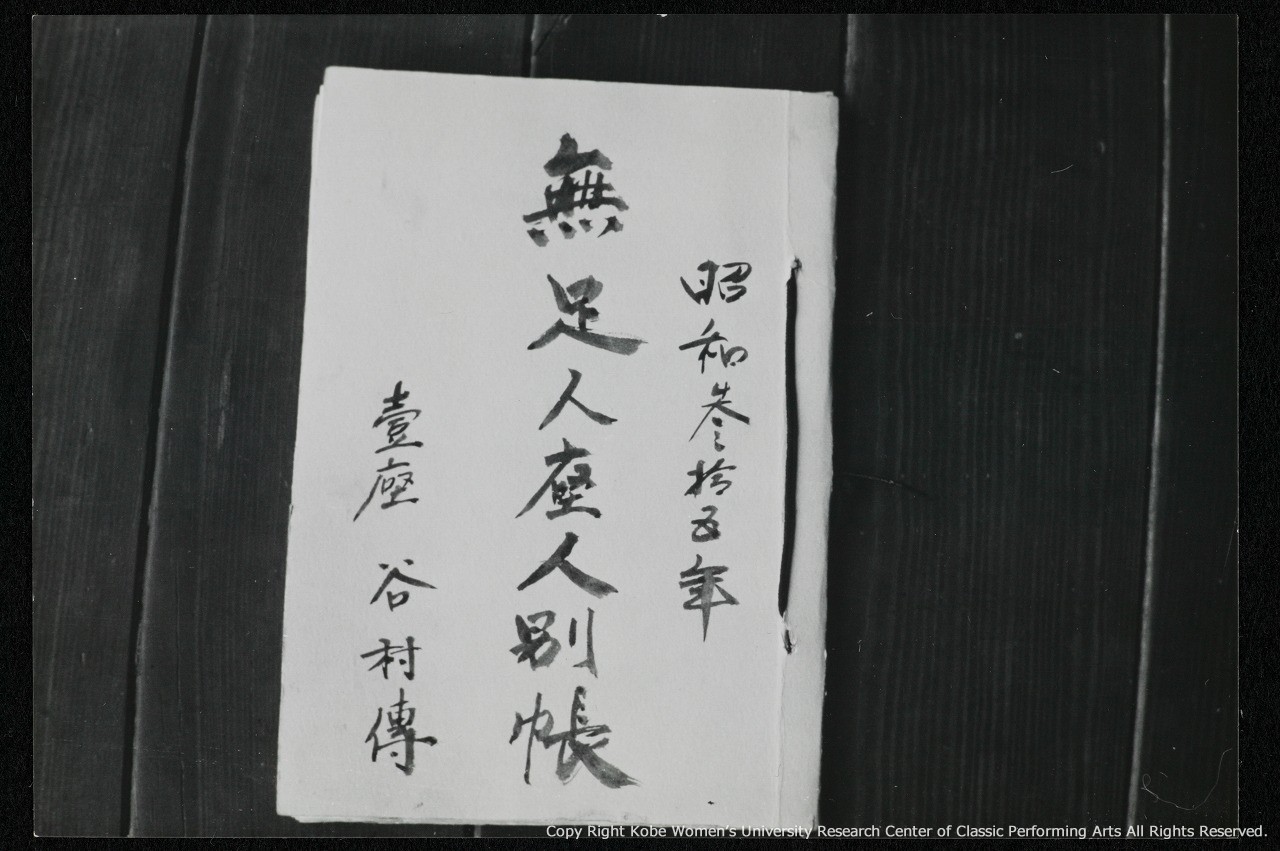 昭和叄拾五年
無足人座人別帳
壹座 谷村傳
Copy Right Kobe Women's University Research Center of Classic Performing Arts All Rights Reserved.